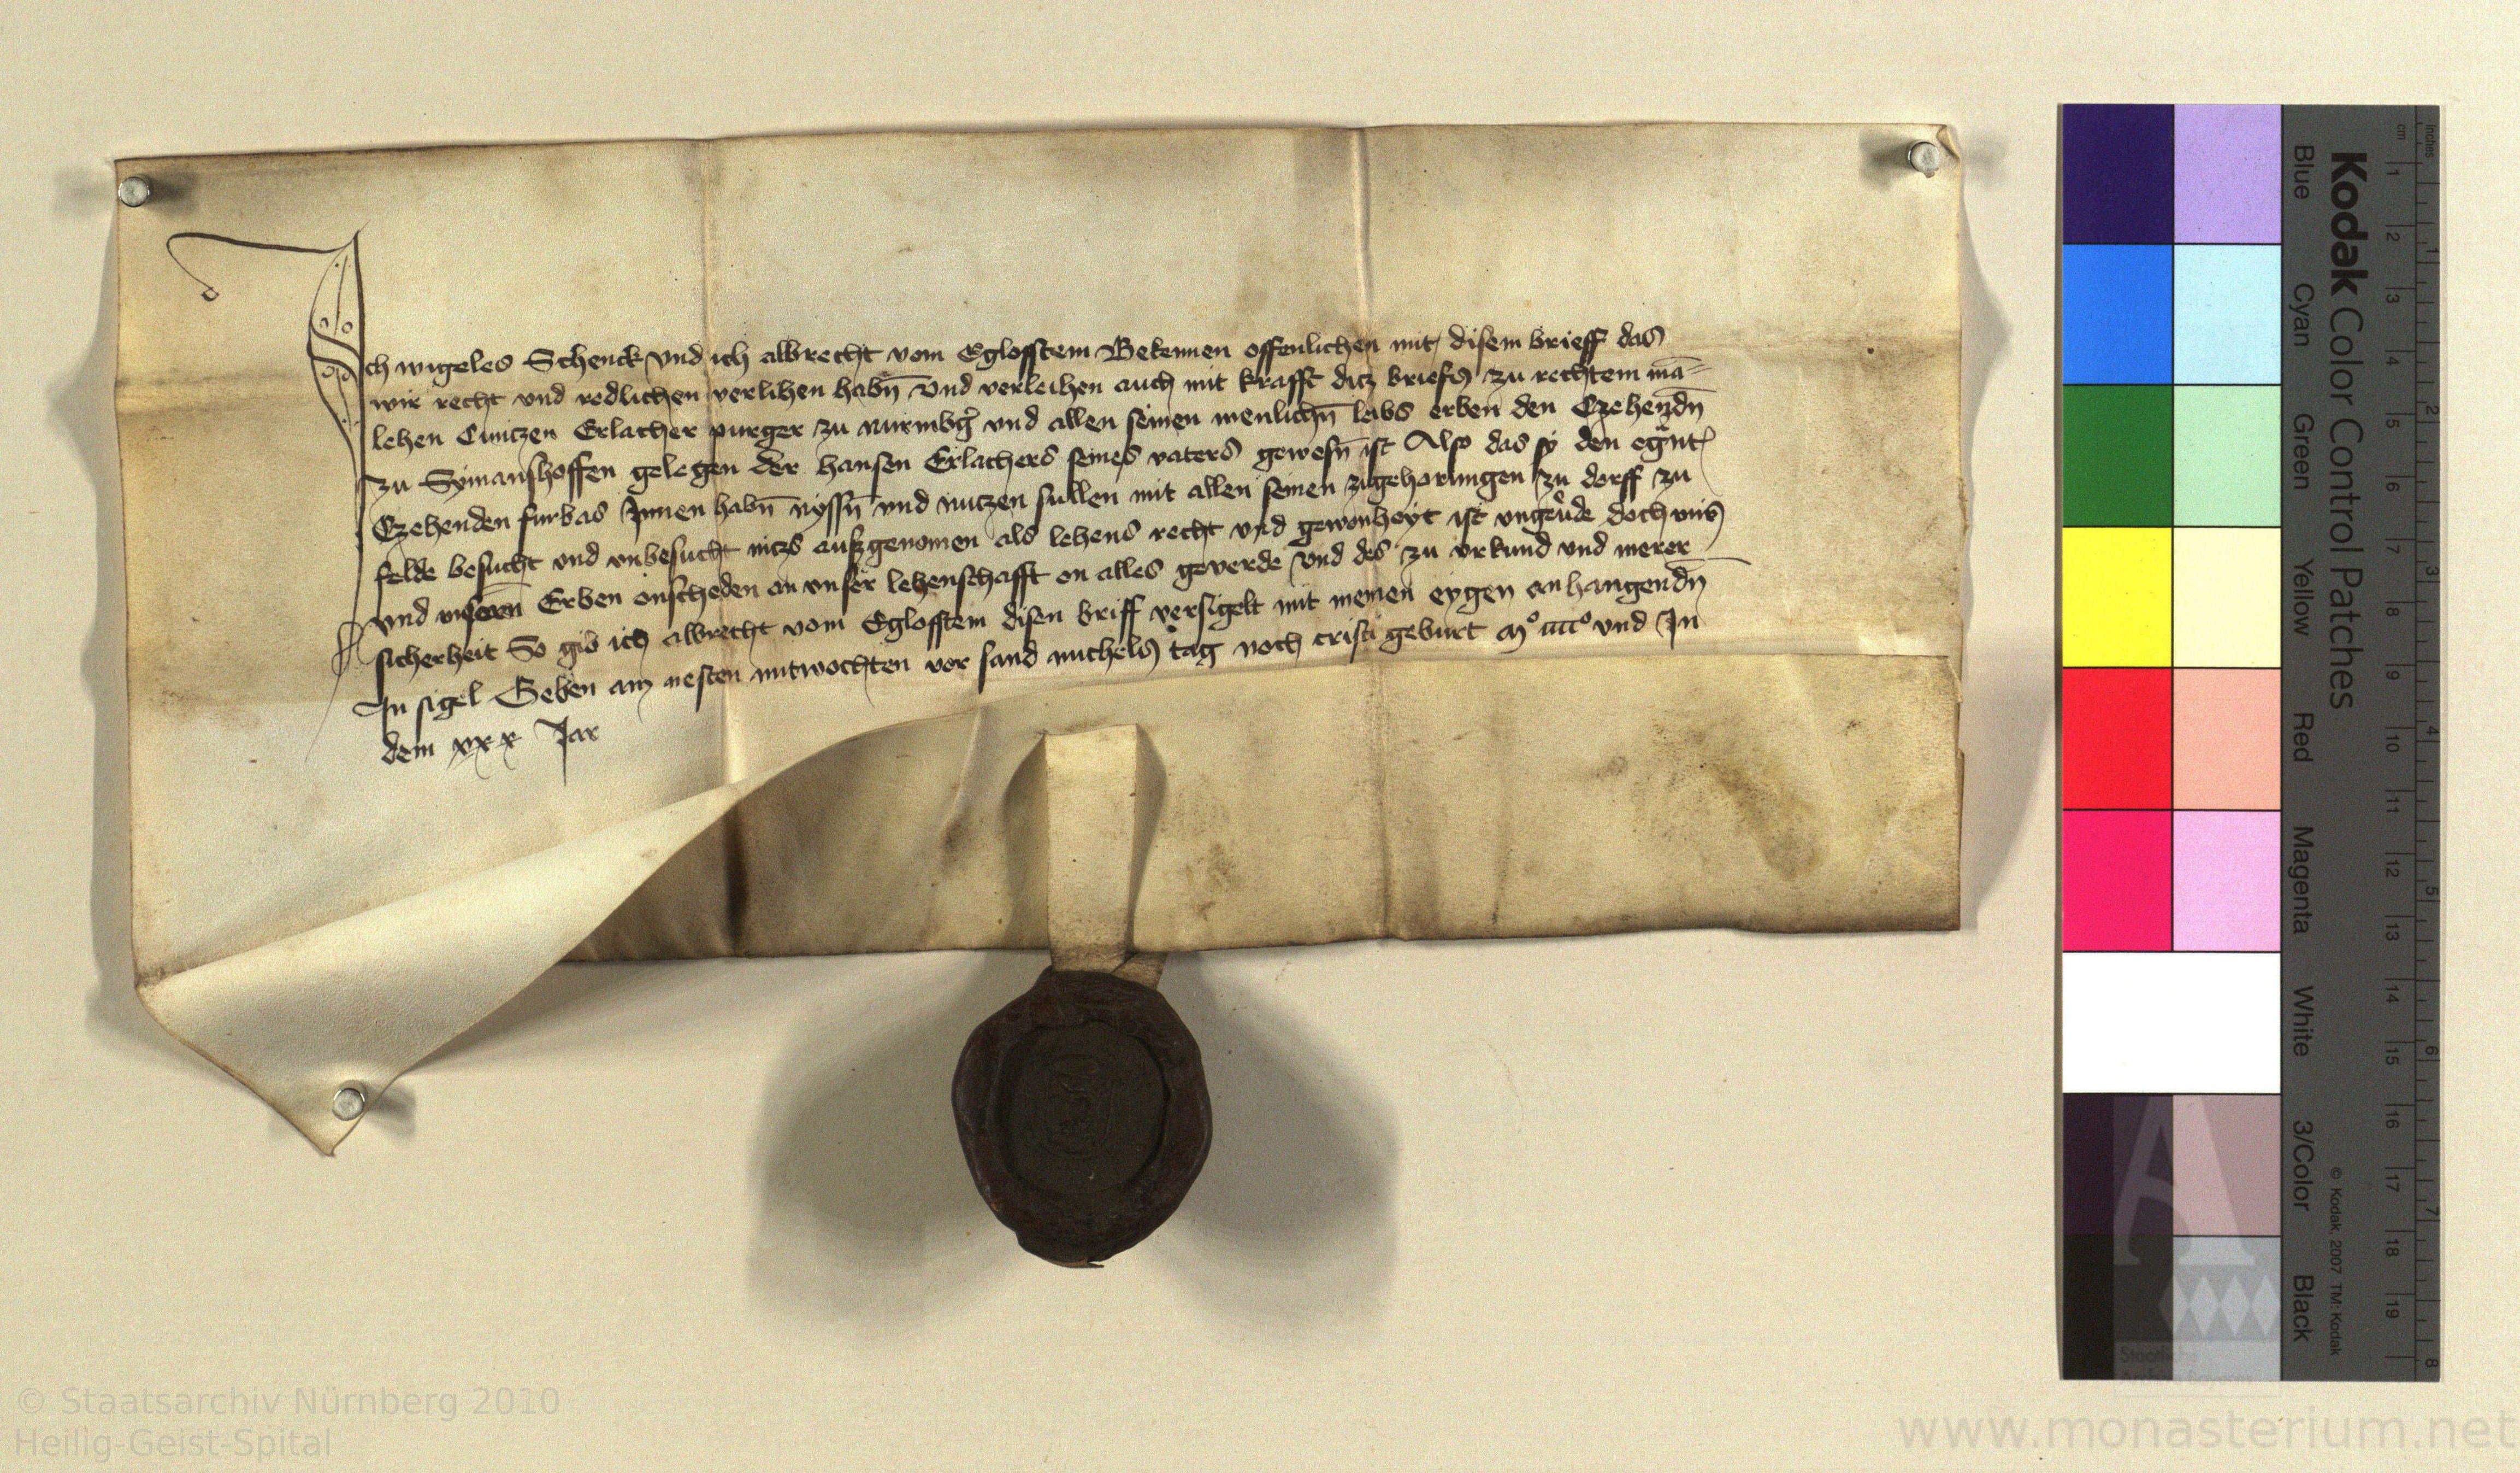 Ich wigeles Schenck vnd ich albrecht vom Eglofstein Bekennen offenlichen mit disem brieff das
wir recht vnd redlichen verlihen habn̄ vnd verleihen auch mit krafft dicz briefs zu rechtem mā=
lehen Cuntzen Erlacher purger zu nurmbg̉ vnd allen seinen menlichn̄ leibs erben den Czehendn̄
zu Symanshoffen gelegen der hansen Erlachers seines vaters gewesn̄ ist Also das sy den egn̄t
Czehenden furbas Jnnen habn̄ nyssn̄ vnd nutzen sullen mit allen seinen zugehorungen zu dorff zu
felde besucht vnd vnbesucht niczs auszgenomen als lehens recht vnd gewonheyt ist vngeu̾de doch vns
vnd vnseren Erben onscheden an vnser lehenschafft on alles geverde Vnd des zu vrkund vnd merer
sicherheit So gib ich albrecht vom Eglofstein disen briff versigelt mit meinen eygen anhangendn̄
Jn sigel Geben am nesten mitwochten vor sand michels tag noch cristi geburt mº iiiicº vnd Jn
dem xxx Jar
Kodak Color Control Patches
Blue Cyan Green Yellow Red Magenta White 3/Color Black
© Kodak, 2007 TM: Kodak
cm 1 2 3 4 5 6 7 8 9 10 11 12 13 14 15 16 17 18 19
inches 1 2 3 4 5 6 7 8
© Staatsarchiv Nürnberg 2010
Heilig-Geist-Spital
www.monasterium.net